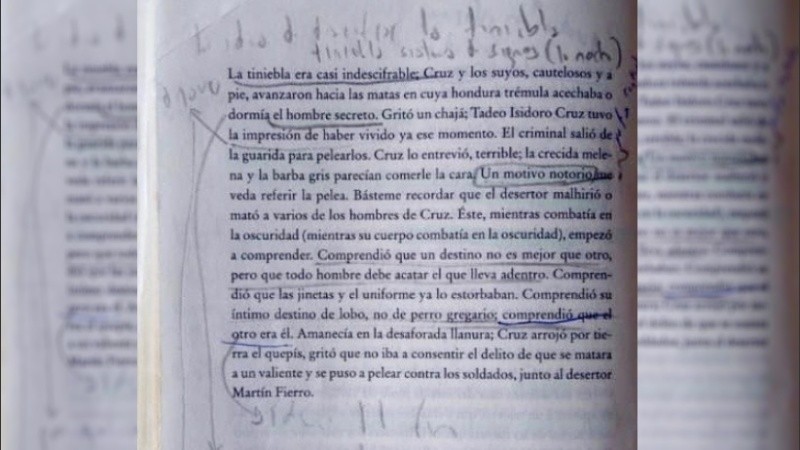 La tiniebla era casi indescifrable; Cruz y los suyos, cautelosos y a
pie, avanzaron hacia las matas en cuya hondura trémula acechaba o
dormía el hombre secreto. Gritó un chajá; Tadeo Isidoro Cruz tuvo
la impresión de haber vivido ya ese momento. El criminal salió de
la guarida para pelearlos. Cruz lo entrevió, terrible; la crecida mele-
na y la barba gris parecían comerle la cara. Un motivo notorio me
veda referir la pelea. Básteme recordar que el desertor malhirió o
mató a varios de los hombres de Cruz. Éste, mientras combatía en
la oscuridad (mientras su cuerpo combatía en la oscuridad), empezó
a comprender. Comprendió que un destino no es mejor que otro,
pero que todo hombre debe acatar el que lleva adentro. Compren-
dió que las jinetas y el uniforme ya lo estorbaban. Comprendió su
íntimo destino de lobo, no de perro gregario; comprendió que el
otro era él. Amanecía en la desaforada llanura; Cruz arrojó por tie-
rra el quepís, gritó que no iba a consentir el delito de que se matara
a un valiente y se puso a pelear contra los soldados, junto al desertor
Martín Fierro.